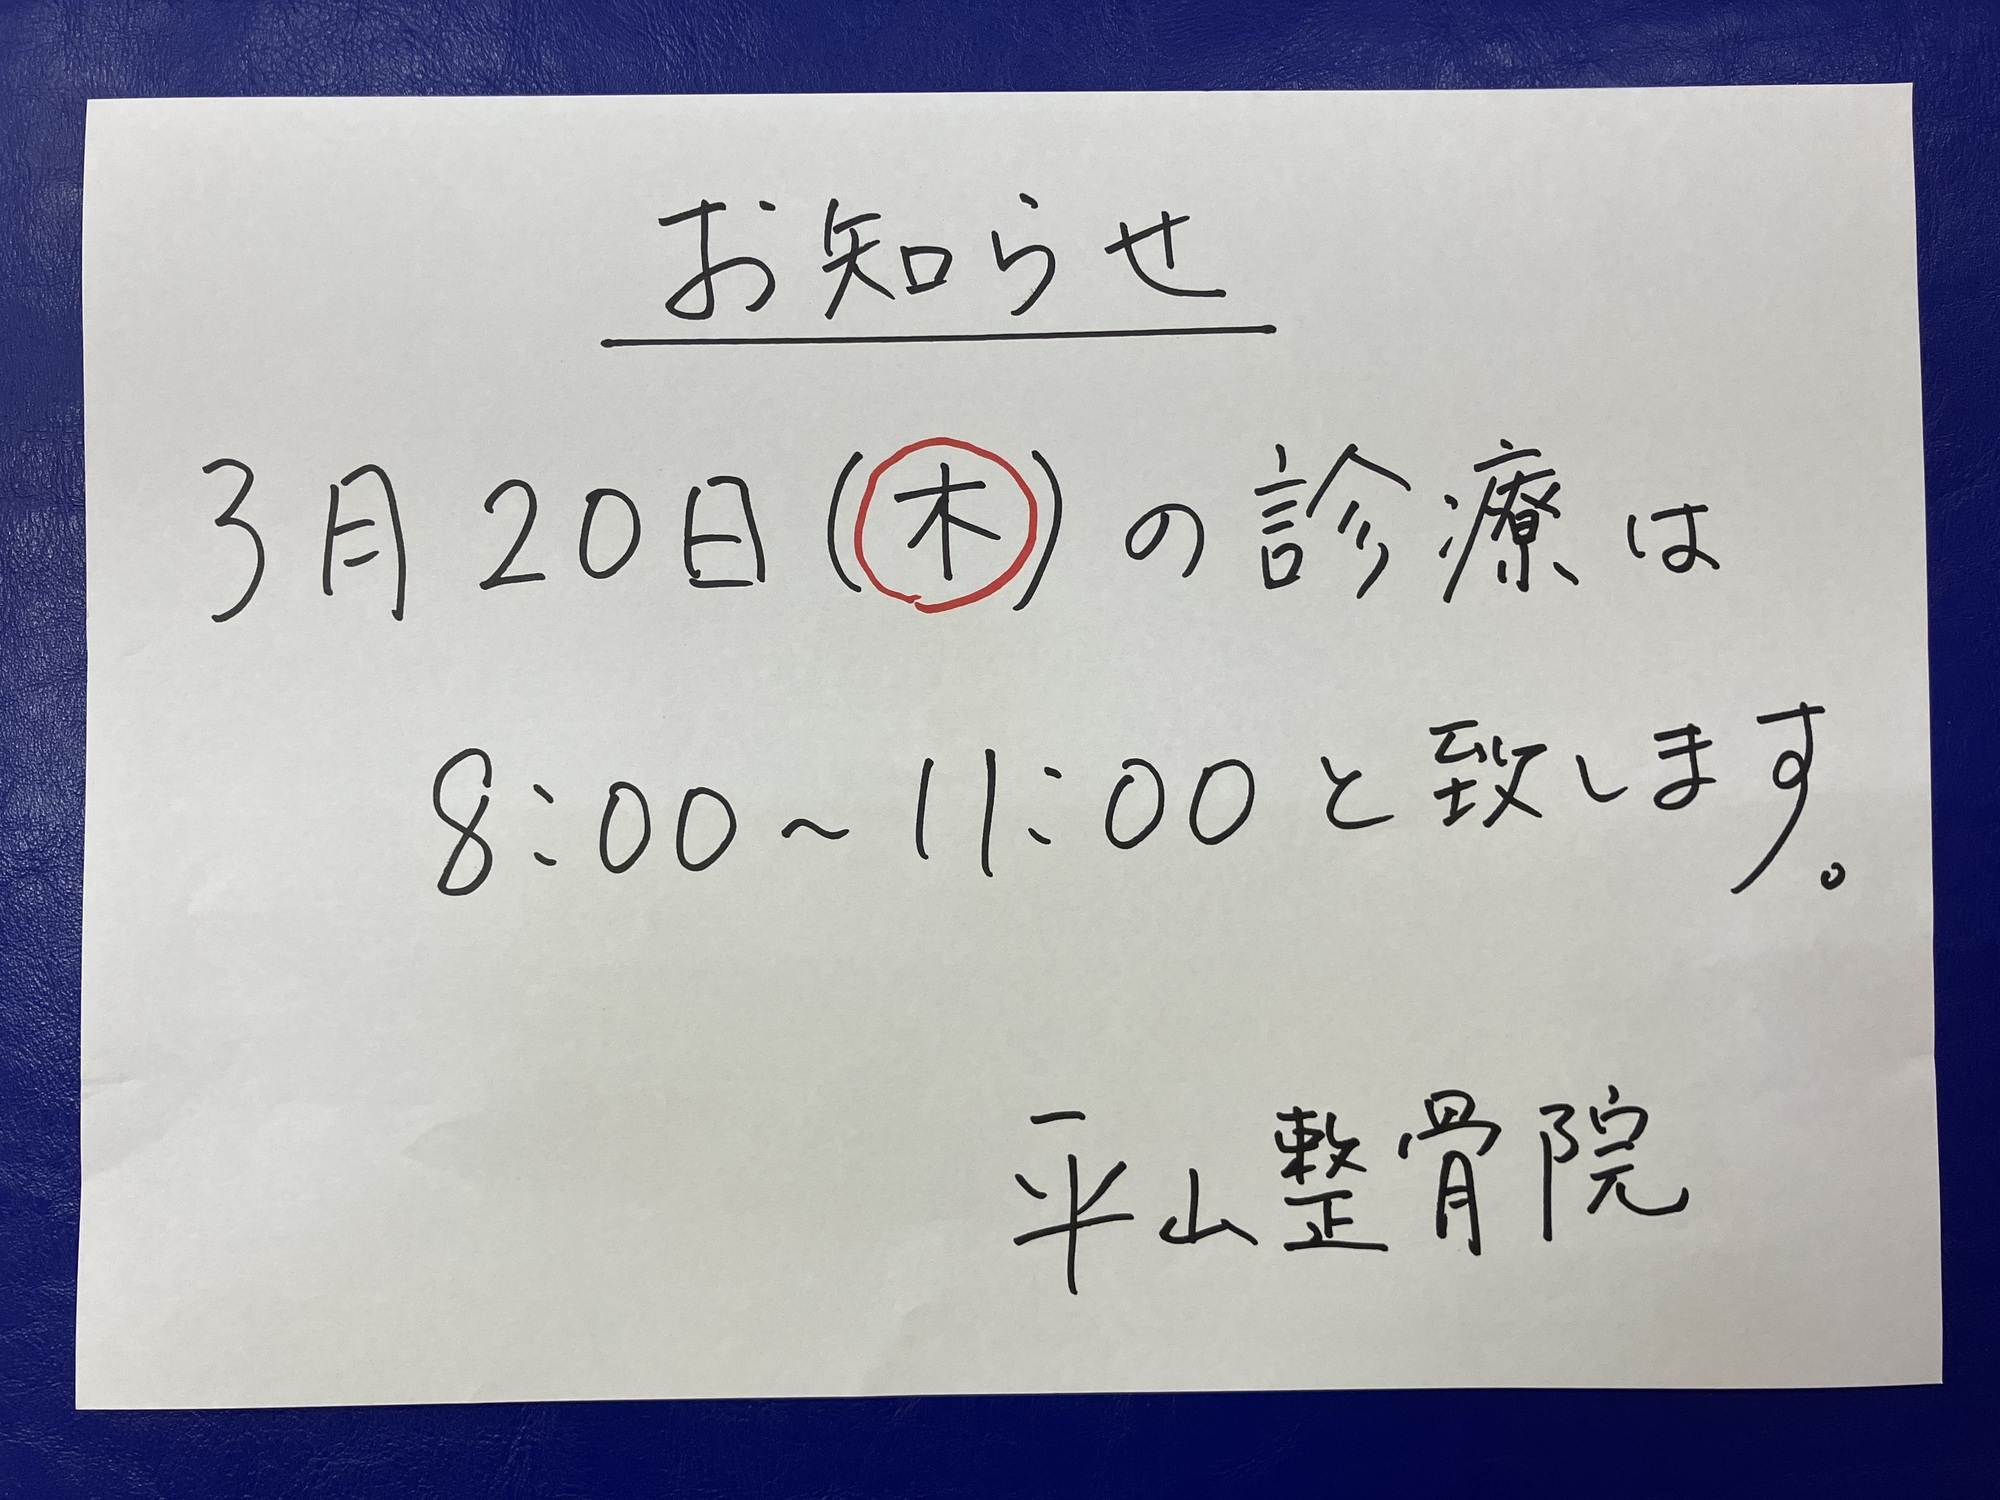 お知らせ
3月20日(木)の診療は
8:00~11:00と致します。
平山整骨院